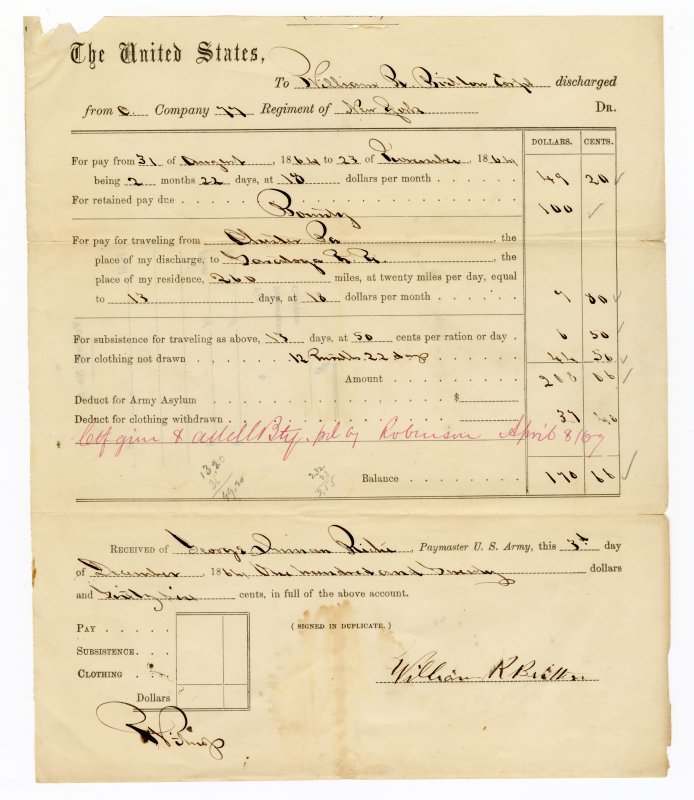 The United States,
To William R. Britton Corpl discharged
from C. Company 77 Regiment of New York Dr.
DOLLARS. CENTS.
For pay from 31 of August, 1864 to 23 of November, 1864
being 2 months 22 days, at 18 dollars per month 49 20
For retained pay due
Bounty 100
For pay for traveling from Chester Pa the
place of my discharge, to Saratoga N. Y., the
place of my residence, 260 miles, at twenty miles per day, equal
to 13 days, at 18 dollars per month 7 80
For subsistence for traveling as above, 13 days, at 50 cents per ration or day 6 50
For clothing not drawn 12 months 22 days 44 56
Amount 208 06
Deduct for Army Asylum $
Deduct for clothing withdrawn 37 40
Ctf given & addl Bty pd by Robinson April 8/67
13.20
36
49.20
232
23
3.55
Balance 170 66
Received of George Richie, Paymaster U. S. Army, this 3d day
of December, 1864 One hundred and Seventy dollars
and Sixty six cents, in full of the above account.
Pay
(SIGNED IN DUPLICATE.)
Subsistence
Clothing
William R Britton
Dollars